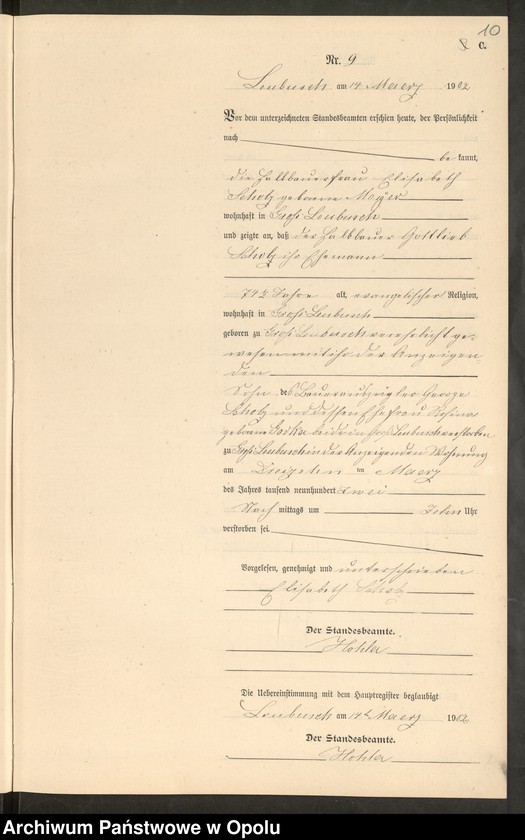 10
8 C.
Nr. 9
Leubusch am 14 Maerz 1902
Vor dem unterzeichneten Standesbeamten erschien heute, der Persönlichkeit
nach
be kannt,
die Halbbauerfrau Elisabeth
Scholz geborene Mayer
wohnhaft in Groß Leubusch
und zeigte an, daß der Halbbauer Gottlieb
Scholz ihr Ehemann
74½ Jahre alt, evangelischer Religion,
wohnhaft in Groß Leubusch
geboren zu Groß Leubusch verehelicht ge-
wesen mit ihr der Anzeigen
den
Sohn des Bauerauszügler George
Scholz und dessen Ehefrau Rosina
geborene beide in Groß Leubusch verstorben
zu Groß Leubusch in der Anzeigenden Wohnung
am Dreizehn ten Maerz
des Jahres tausend neunhundert zwei
Nach mittags um Uhr
verstorben sei.
Vorgelesen, genehmigt und unterschrieben
Elisabeth Scholz
Der Standesbeamte.
Hohler
Die Uebereinstimmung mit dem Hauptregister beglaubigt
Leubusch am 14 Maerz 1902
Der Standesbeamte.
Hohler
Archiwum Państwowe w Opolu